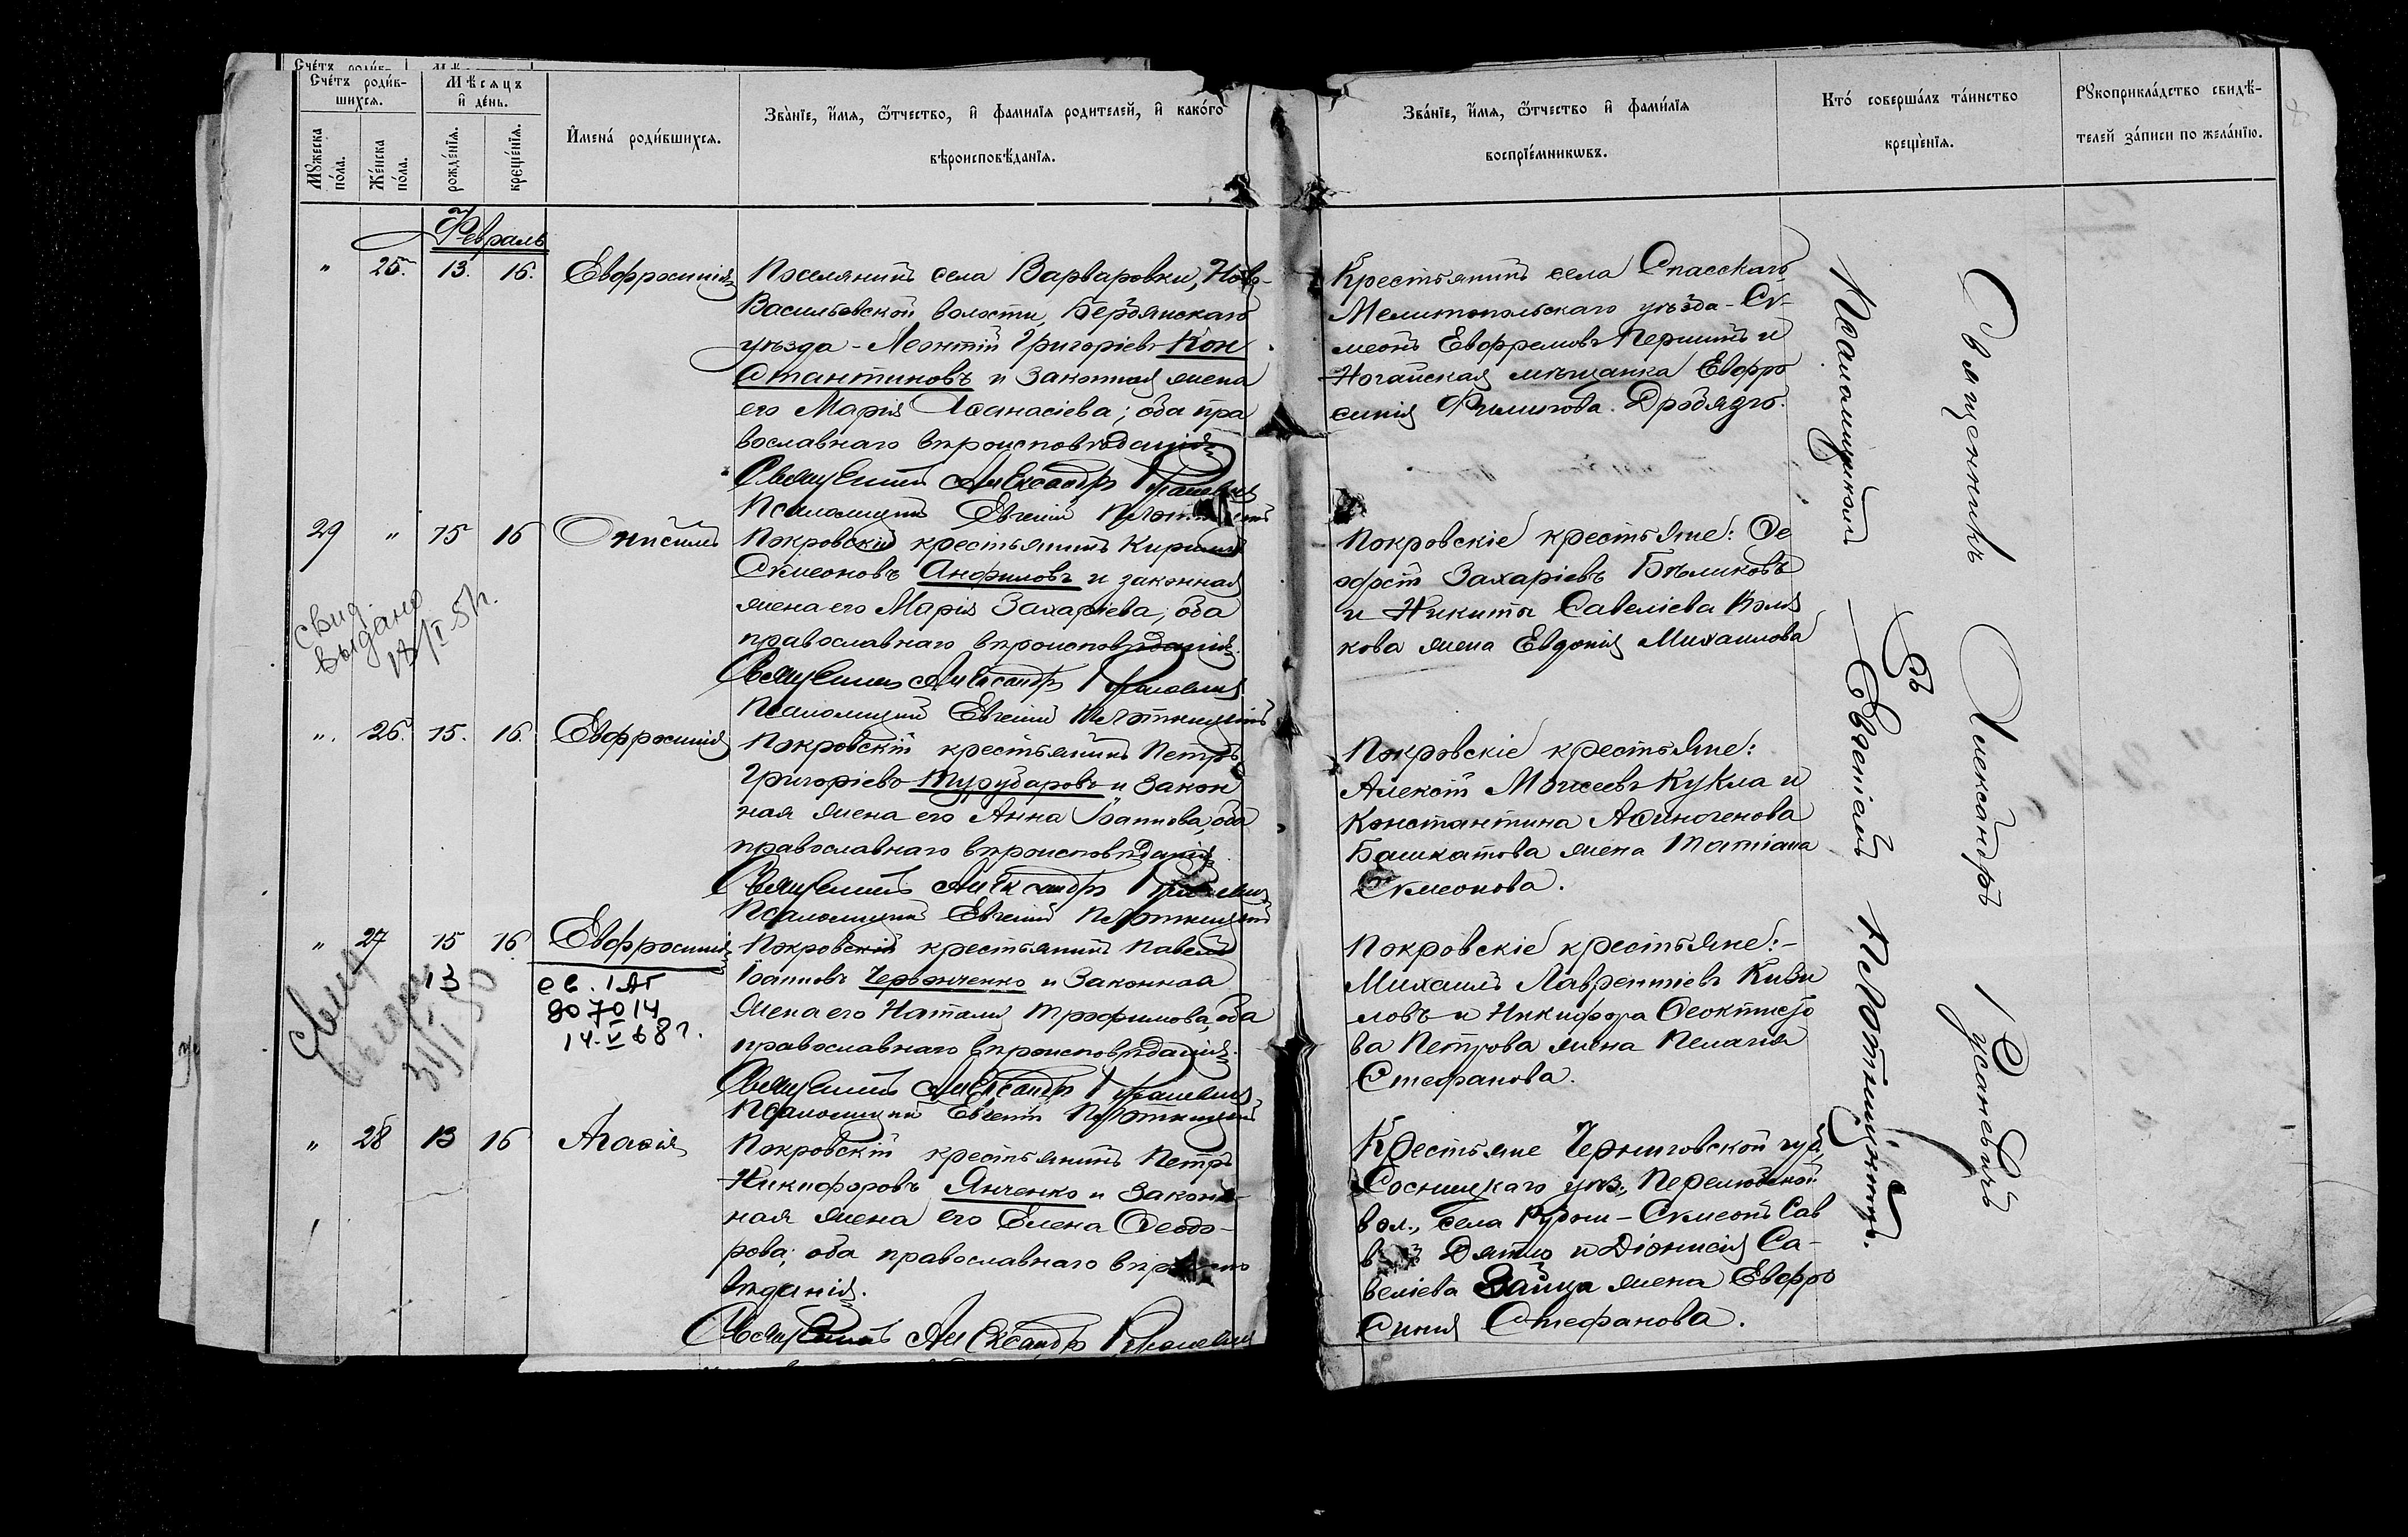 Счетъ родив-
шихся.
Мѣсяцъ
и день.
Мужеска пола.
Женска пола.
рожденія.
крещенія.
Имена родившихся.
Званіе, имя, отчество, и фамилія родителей, и какого
вѣроисповѣданія.
Званіе, имя, отчество и фамилія
воспріемниковъ.
Кто совершалъ таинство
крещенія.
Рукоприкладство свидѣ-
телей записи по желанію.
Февраль
" 25. 13. 16. Евфросинія
Поселянинъ села Варваровки, Ново-
Васильевской волости, Бердянскаго
уѣзда - Леонтій Григоріевъ Кон
стантиновъ и законная жена
его Марія Аѳанасіева; оба пра
вославнаго вѣроисповѣданія
Священникъ Александръ
Псаломщикъ Евгеній
Крестьянинъ села Спасскаго
Мелитопольскаго уѣзда - Сѵ-
меонъ Евфремовъ Першинъ и
Ногайская мѣщанка Евфро
синія Филипова Дробязго.
29 " 15 16 Онисимъ
Покровскій крестьянинъ Кириллъ
Сѵмеоновъ Анфиловъ и законная
жена его Марія Захаріева; оба
православнаго вѣроисповѣданія.
Священникъ Александръ
Псаломщикъ Евгеній
Покровскіе крестьяне: Ѳе
офистъ Захаріевъ Бѣликовъ
и Никиты Савеліева
кова жена Евдокія Михаилова
Свид.
выдано
". 26. 15. 16. Евфросинія
Покровскій крестьянинъ Петръ
Григоріевъ Турубаровъ и закон
ная жена его Анна Іоаннова, оба
православнаго вѣроисповѣданія
Священникъ Александръ
Псаломщикъ Евгеній
Покровскіе крестьяне:
Алексій Моисеевъ Кукла и
Константина Аѳиногенова
Башкатова жена Татіана
Сѵмеонова.
" 27 15 16. Евфросинія
13
св. 1 АГ
807014
14. V 68 г.
Свид
выдано
Покровскій крестьянинъ Павелъ
Іоанновъ Червонченко и законная
жена его Наталія Трофимова, оба
православнаго вѣроисповѣданія.
Священникъ Александръ
Псаломщикъ Евгеній
Покровскіе крестьяне:-
Михаилъ Лаврентіевъ Киви
ловъ и Никифора Ѳеоктисто
ва Петрова жена Пелагія
Стефанова.
" 28 13 16 Агаѳія
Покровскій крестьянинъ Петръ
Никифоровъ Янченко и закон-
ная жена его Елена Ѳеодо-
рова; оба православнаго
вѣданія.
Священникъ Александръ
Крестьяне Черниговской губ.,
Сосницкаго уѣз., Перелюбской
вол., села Рудни - Сѵмеонъ Сав
Дятло и Діонисія Са-
веліева Зайца жена Евфро
синія Стефанова.
Священникъ Александръ
Съ
Псаломщикомъ Евгеніемъ